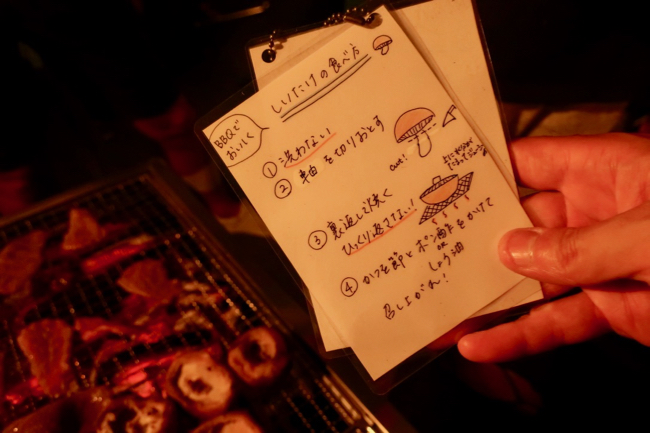 しいたけの食べ方
BBQで
おいしく
① 洗わない
② 軸を切りおとす
cut!
③ 裏返して焼く
ひっくり返さない!
④ かつを節とポン酢をかけて
or
しょう油
召し上がれ!